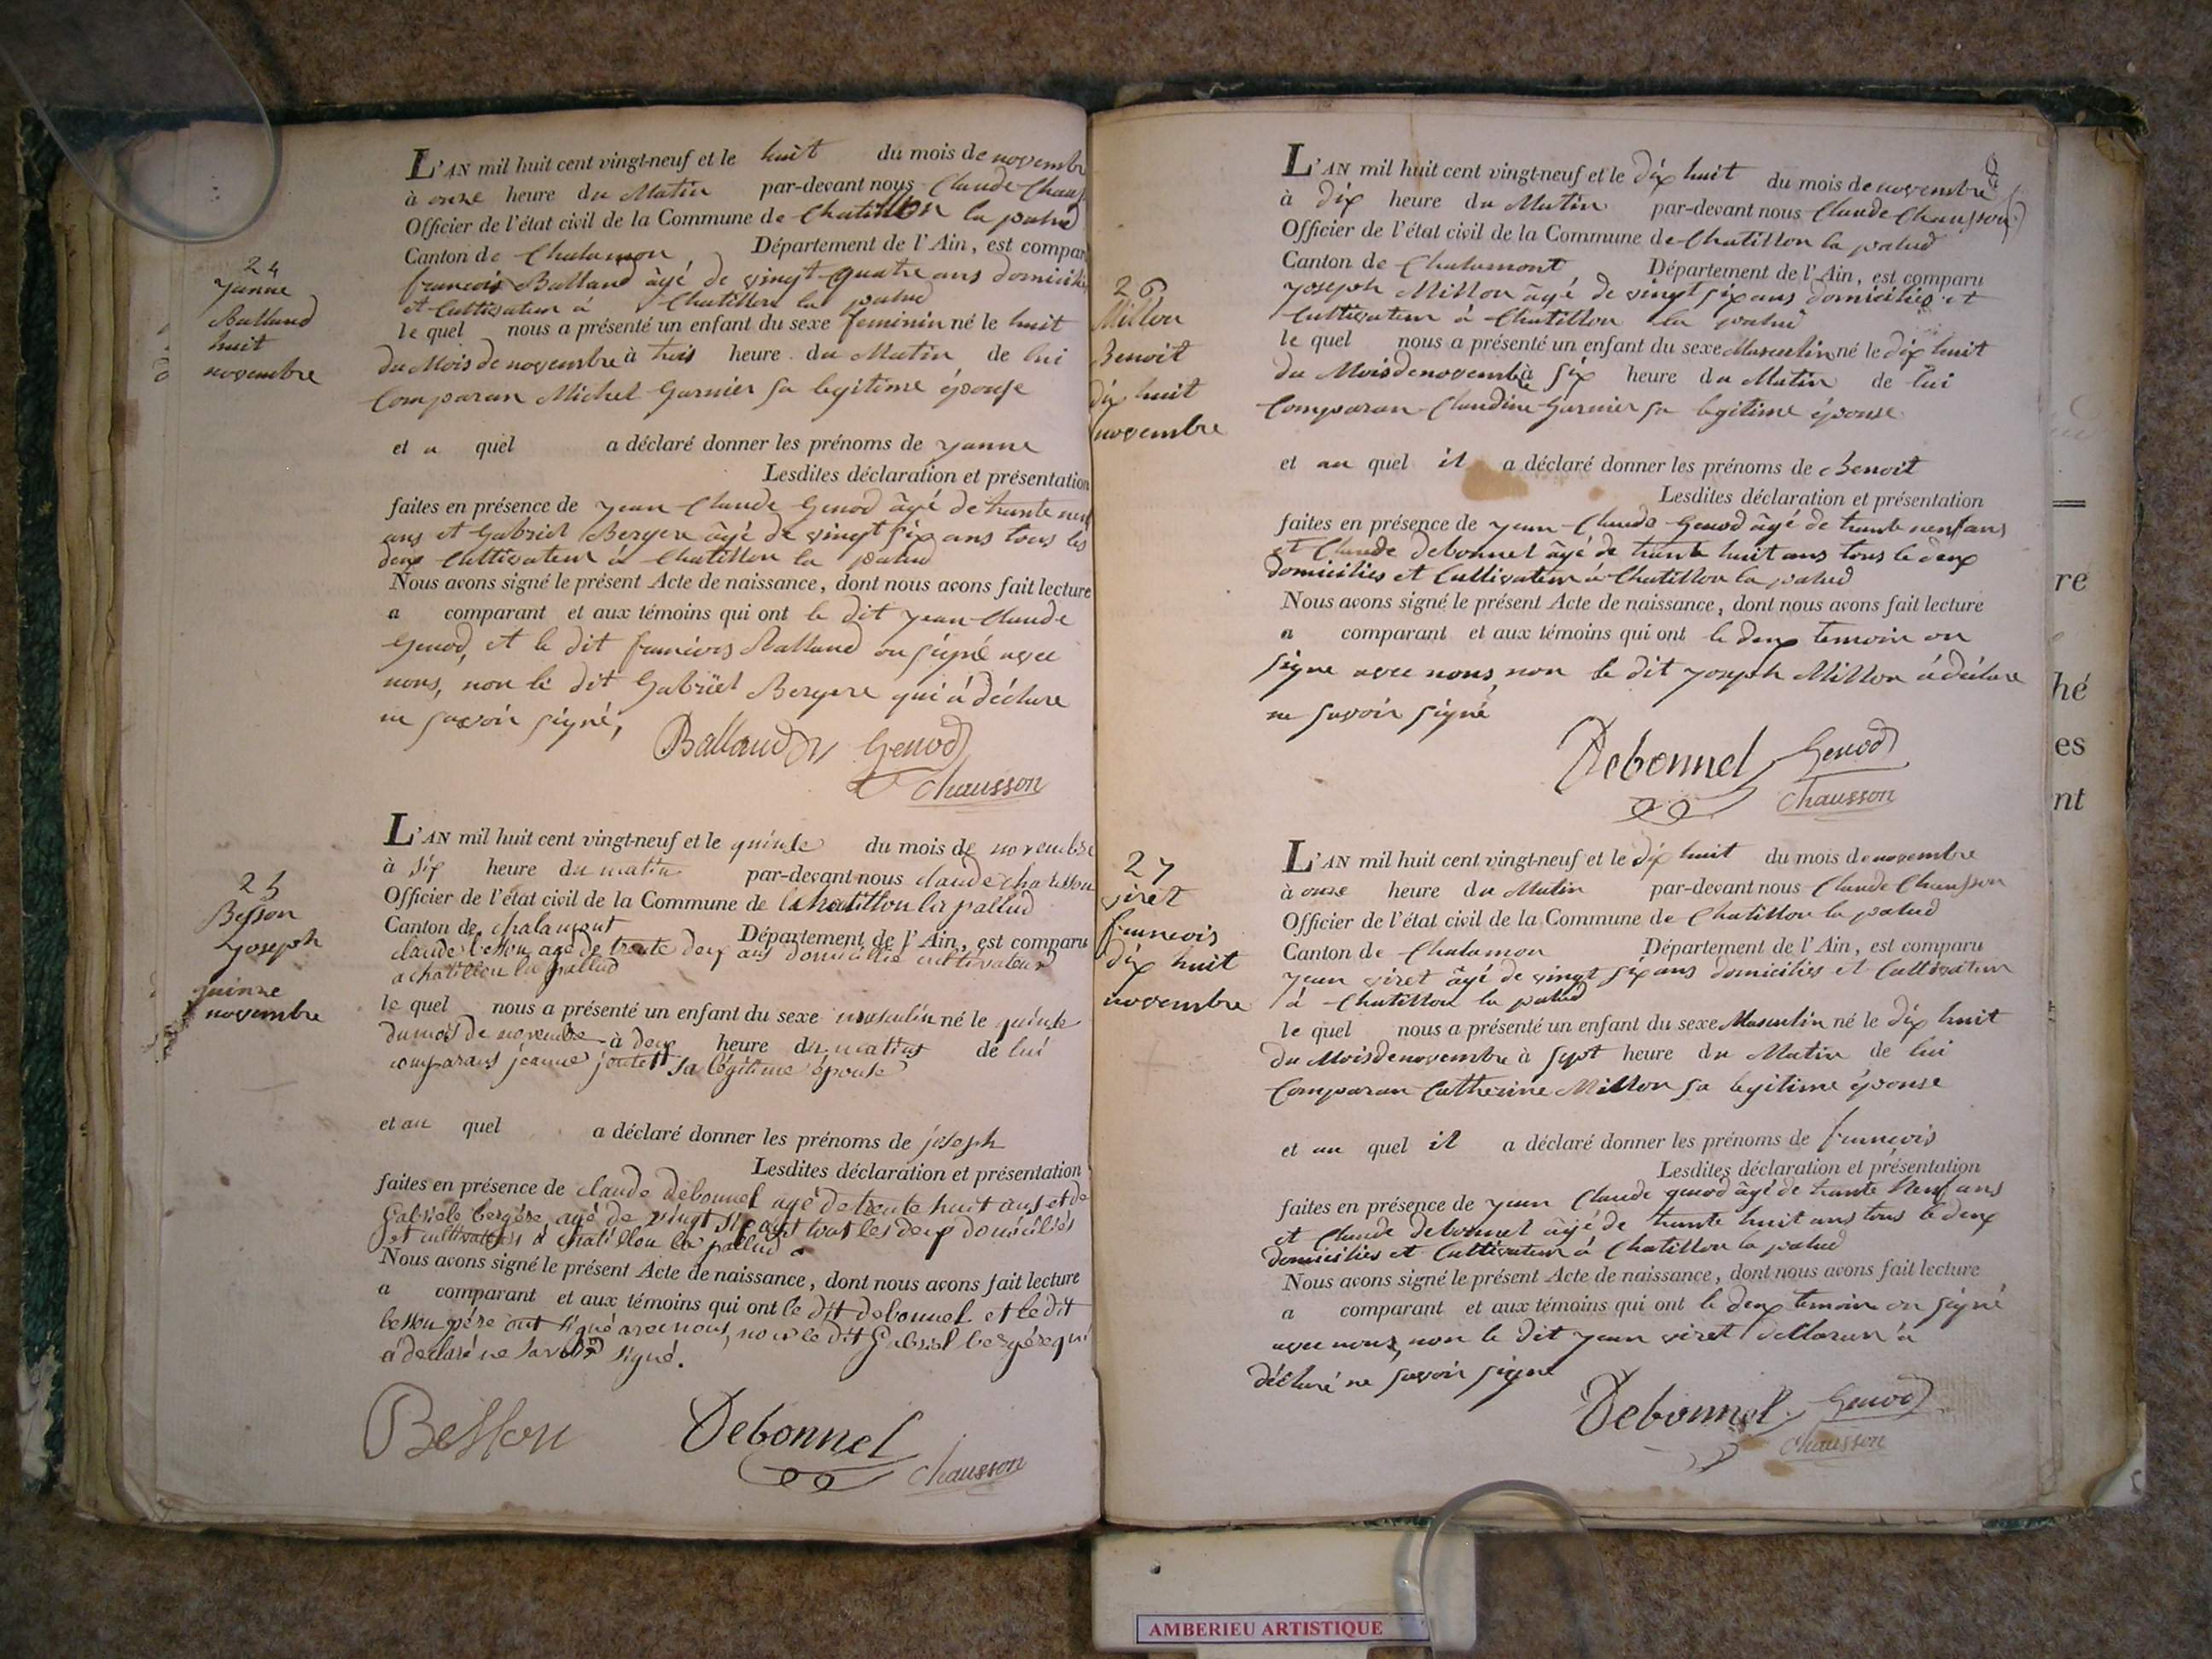 24
yanne
Balland
huit
novembre
L'AN mil huit cent vingt-neuf et le huit du mois de novembre
à onze heure du Matin par-devant nous Claude Chaus
Officier de l'état civil de la Commune de Chatillon la palud
Canton de Chalamon Département de l'Ain, est compar
francois Balland âgé de vingt quatre ans domicilié
et Cultivateur à Chatillon la palud
le quel nous a présenté un enfant du sexe feminin né le huit
du Mois de novembre à trois heure du Matin de lui
Comparan Michel Garnier sa legitime épouse
et a quel a déclaré donner les prénoms de yanne
Lesdites déclaration et présentation
faites en présence de yean Claude Genod âgé de trante neuf
ans et Gabriel Bergere âgé de vingt six ans tous les
deux Cultivateur à Chatillon la palud
Nous avons signé le présent Acte de naissance, dont nous avons fait lecture
a comparant et aux témoins qui ont le dit yean Claude
Genod, et le dit francois Balland on signé avec
nous, non le dit Gabriel Bergere qui à déclare
ne savoir signé,
Balland Genod
Chausson
25
Besson
yoseph
quinze
novembre
L'AN mil huit cent vingt-neuf et le quinze du mois de novembre
à six heure du matin par-devant nous claude chausson
Officier de l'état civil de la Commune de Chatillon la pallud
Canton de chalamont Département de l'Ain, est comparu
claude besson agé de trente deux ans domicillié cultivateur
a chatillon la pallud
le quel nous a présenté un enfant du sexe masculin né le quinze
du mois de novembre à deux heure du mattin de lui
comparans jeanne joutet sa légitime épouse
et au quel a déclaré donner les prénoms de joseph
Lesdites déclaration et présentation
faites en présence de claude debonnel agé de trente huit ans et de
Gabriele bergére agé de vingt six ans tous les deux domiciliés
et cultivateurs à chatillon la pallud
Nous avons signé le présent Acte de naissance, dont nous avons fait lecture
a comparant et aux témoins qui ont le dit debonnel et le dit
besson pére ont signé avec nous, non le dit Gabriel bergére qui
a déclaré ne savoir signé.
Besson Debonnel
Chausson
26
Millon
Benoit
dix huit
novembre
L'AN mil huit cent vingt-neuf et le dix huit du mois de novembre
à dix heure du Matin par-devant nous Claude Chausson
Officier de l'état civil de la Commune de Chatillon la palud
Canton de Chalamont Département de l'Ain, est comparu
yoseph Millon âgé de vingt six ans domiciliés et
Cultivateur à Chatillon la palud
le quel nous a présenté un enfant du sexe Masculin né le dix huit
du Mois de novembre à six heure du Matin de lui
Comparan Claudine Garnier sa legitime épouse
et au quel il a déclaré donner les prénoms de Benoit
Lesdites déclaration et présentation
faites en présence de yean Claude Genod âgé de trante neuf ans
et Claude debonnel âgé de trante huit ans tous le deux
domicilies et Cultivateur à Chatillon la palud
Nous avons signé le présent Acte de naissance, dont nous avons fait lecture
a comparant et aux témoins qui ont le deux temoin on
signe avec nous, non le dit yoseph Millon à déclare
ne savoir signé
Debonnel Genod
Chausson
27
viret
francois
dix huit
novembre
L'AN mil huit cent vingt-neuf et le dix huit du mois de novembre
à onze heure du Matin par-devant nous Claude Chausson
Officier de l'état civil de la Commune de Chatillon la palud
Canton de Chalamon Département de l'Ain, est comparu
yean viret âgé de vingt six ans domicilies et Cultivateur
à Chatillon la palud
le quel nous a présenté un enfant du sexe Masculin né le dix huit
du Mois de novembre à sept heure du Matin de lui
Comparan Catherine Millon sa legitime épouse
et au quel il a déclaré donner les prénoms de francois
Lesdites déclaration et présentation
faites en présence de yean Claude genod âgé de trante Neuf ans
et Claude debonnel âgé de trante huit ans tous le deux
domicilies et Cultivateur à Chatillon la palud
Nous avons signé le présent Acte de naissance, dont nous avons fait lecture
a comparant et aux témoins qui ont le deux temoin on signé
avec nous, non le dit yean viret à
déclaré ne savoir signe
Debonnel Genod
Chausson
re
hé
es
nt
AMBERIEU ARTISTIQUE